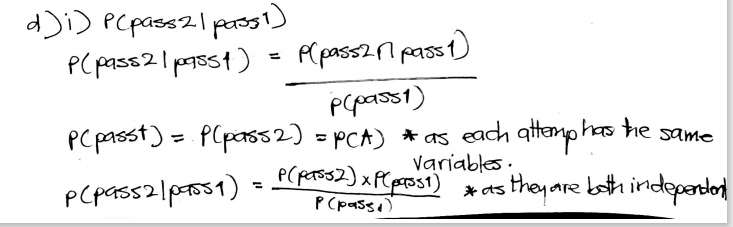 d)i) P(pass2|pass1)
P(pass2|pass1) = P(pass2∩pass1)
P(pass1)
P(pass1) = P(pass2) = P(A) * as each attemp has the same
variables.
P(pass2|pass1) = P(pass2)×P(pass1) * as they are both independent
P(pass1)